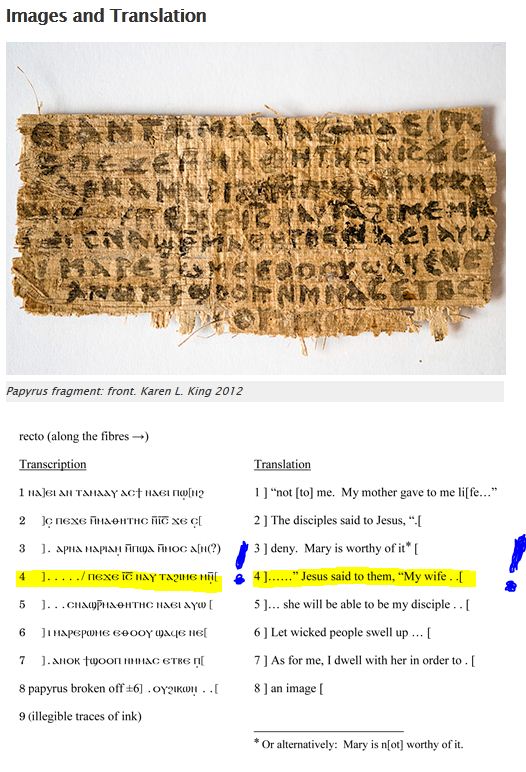 Images and Translation
Papyrus fragment: front. Karen L. King 2012
recto (along the fibres →)
Transcription
1 ⲛⲁ]ⲉⲓ ⲁⲛ ⲧⲁⲙⲁⲁⲩ ⲁⲥϯ ⲛⲁⲉⲓ ⲡⲱ̣[ⲛϩ
2 ]ⲥ̣ ⲡⲉϫⲉ ⲙ̄ⲙⲁⲑⲏⲧⲏⲥ ⲛ̄ⲓ̅ⲥ̅ ϫⲉ ⲥ̣[
3 ] . ⲁⲣⲛⲁ ⲙⲁⲣⲓⲁⲙ ⲙ̄ⲡϣⲁ ⲙ̄ⲙⲟⲥ ⲁ[ⲛ(?)
4 ] . . . . . / ⲡⲉϫⲉ ⲓ̅ⲥ̅ ⲛⲁⲩ ⲧⲁϩⲓⲙⲉ ⲙⲛ̄[
5 ] . . . ⲥⲛⲁϣⲣ̄ⲙⲁⲑⲏⲧⲏⲥ ⲛⲁⲉⲓ ⲁⲩⲱ [
6 ] ⲓ ⲙⲁⲣⲉⲣⲱⲙⲉ ⲉⲑⲟⲟⲩ ϣⲁϥⲉ ⲛⲉ[
7 ] . ⲁⲛⲟⲕ ϯϣⲟⲟⲡ ⲛⲙⲙⲁⲥ ⲉⲧⲃⲉ ⲡ̣[
8 papyrus broken off ±6] . ⲟⲩϩⲓⲕⲱⲛ̣ . . [
9 (illegible traces of ink)
Translation
1 ] “not [to] me. My mother gave to me li[fe…”
2 ] The disciples said to Jesus, “.[
3 ] deny. Mary is worthy of it* [
4 ]……” Jesus said to them, “My wife . .[
5 ]… she will be able to be my disciple . . [
6 ] Let wicked people swell up … [
7 ] As for me, I dwell with her in order to . [
8 ] an image [
* Or alternatively: Mary is n[ot] worthy of it.
!
!